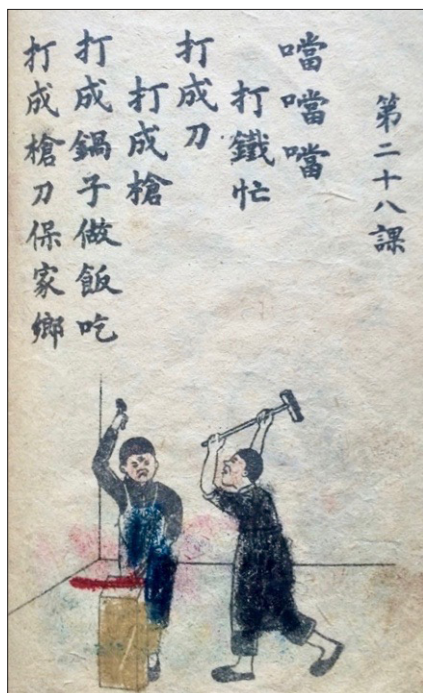 第二十八課
噹噹噹
打鐵忙
打成刀
打成槍
打成鍋子做飯吃
打成槍刀保家鄉